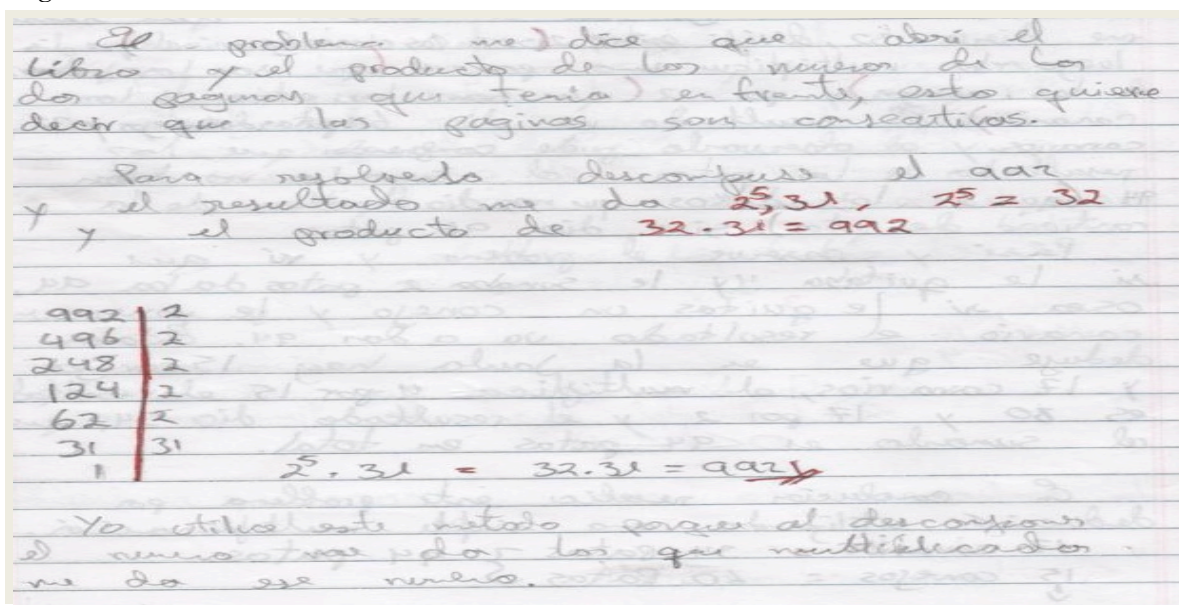 El problema me dice que abri el
libro y el producto de los numeros de las
dos paginas que tenia en frente, esto quiere
decir que las paginas son consecutivas.
Para resolverlo descompuse el 992
y el resultado me da 2⁵, 31, 2⁵ = 32
y el producto de 32 . 31 = 992
992 | 2
496 | 2
248 | 2
124 | 2
62 | 2
31 | 31
1
2⁵ . 31 = 32 . 31 = 992
Yo utilice este metodo porque al descomponer
el numero me da los que multiplicados
me da ese numero.